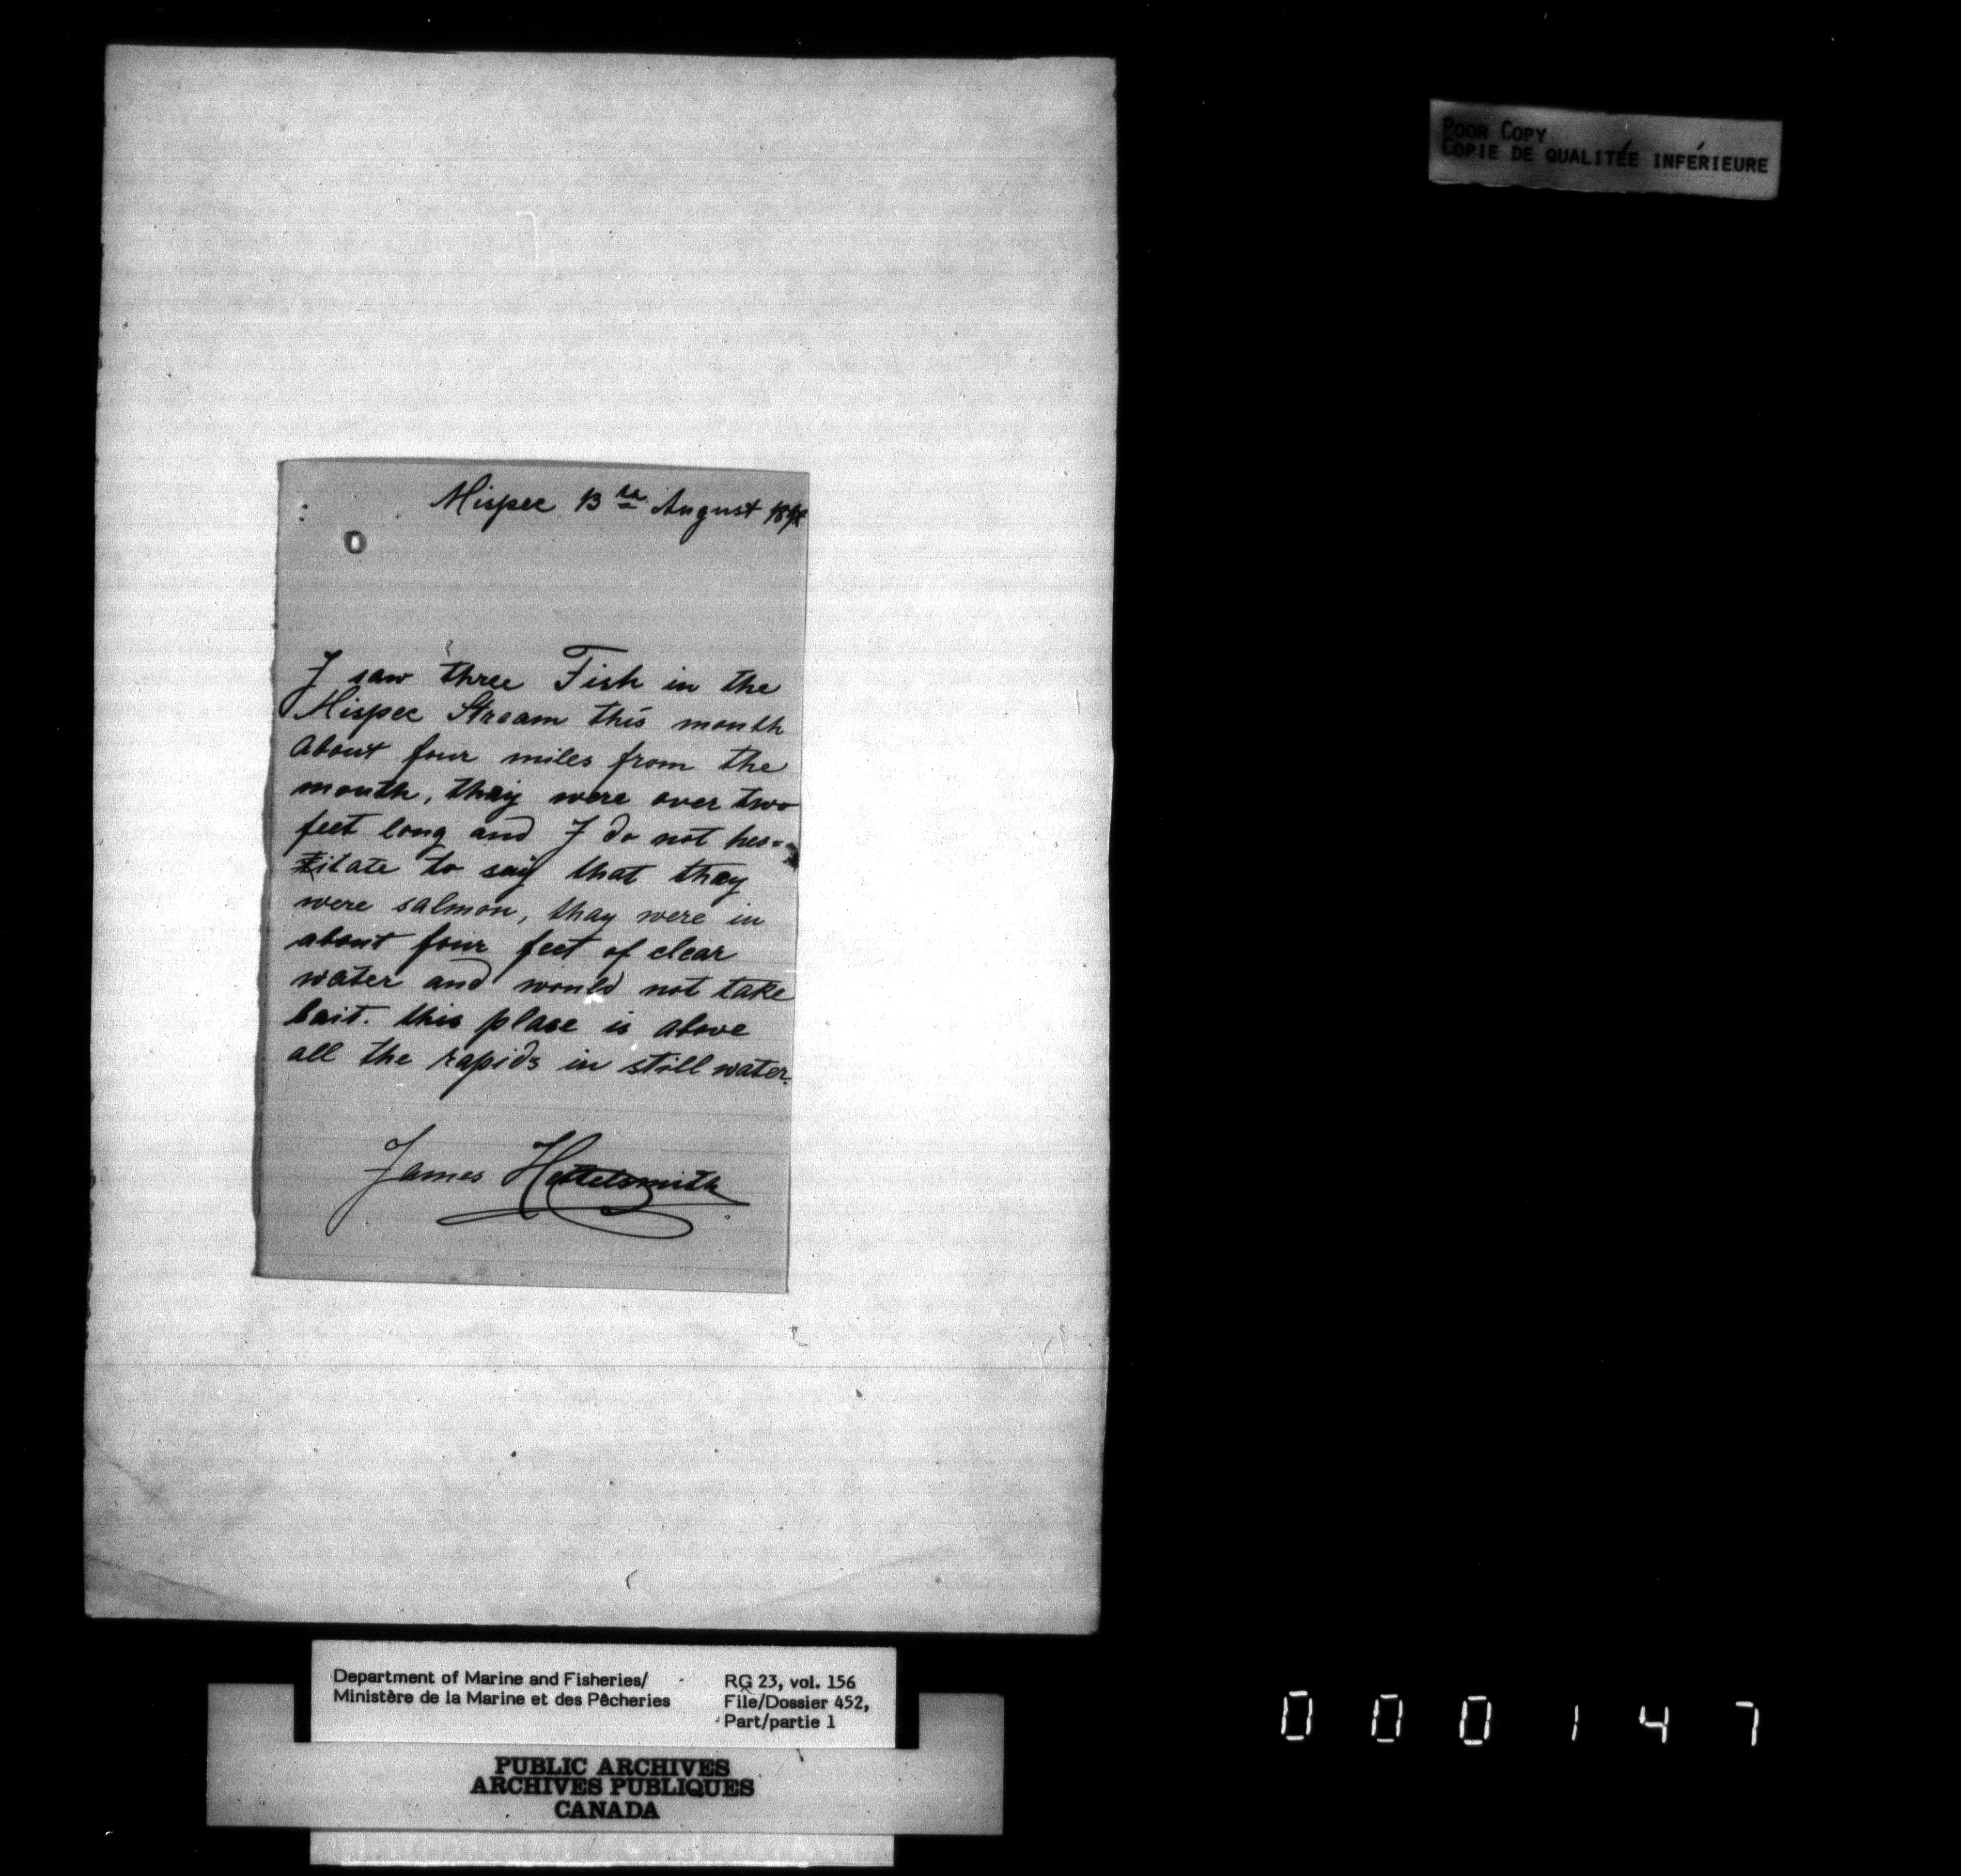 POOR COPY
COPIE DE QUALITÉE INFÉRIEURE
Mispec 13th August
I saw three Fish in the
Mispec Straam this month
about four miles from the
mouth, thay were over two
feet long and I do not hes-
itate to say that thay
were salmon, thay were in
about four feet of clear
water and would not take
bait. this place is above
all the rapids in still water.
James Hettelsmith
Department of Marine and Fisheries/
Ministère de la Marine et des Pêcheries
RG 23, vol. 156
File/Dossier 452,
Part/partie 1
PUBLIC ARCHIVES
ARCHIVES PUBLIQUES
CANADA
000147